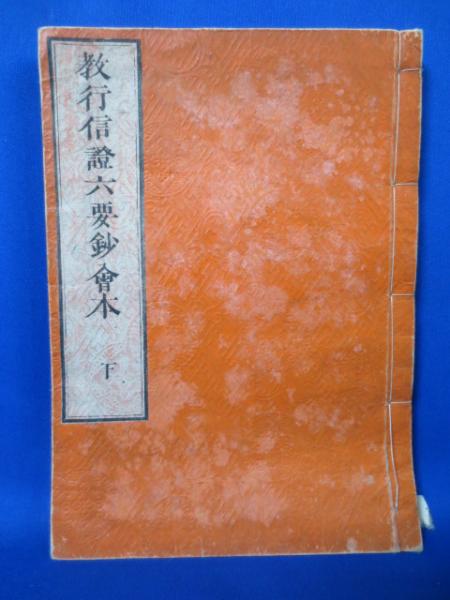 教行信證六要鈔會本一下